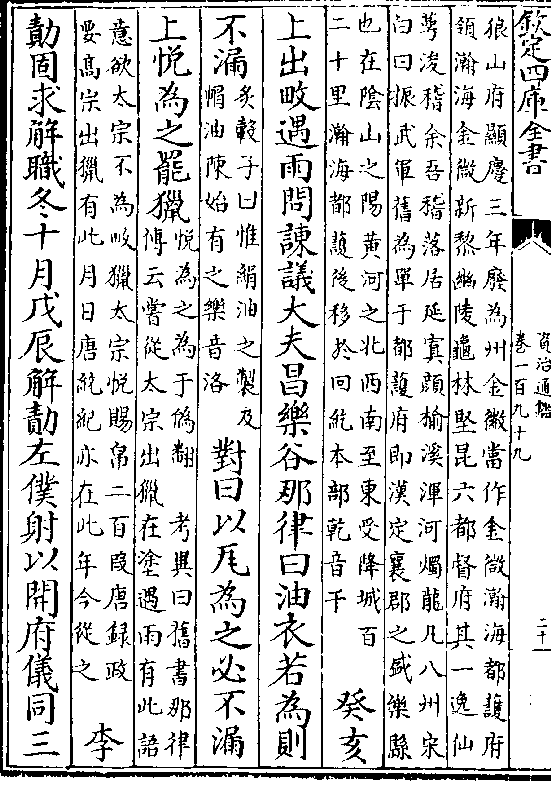 欽定四庫全書
資治通鑑
卷一百九十九
二十一
狼山府顯慶三年廢為州金徽當作金微瀚海都護府
領瀚海金微新黎幽陵龜林堅昆六都督府其一逸仙
萼浚稽余吾稽落居延寘顔榆溪渾河燭龍凡八州宋
白曰振武軍舊為單于都護府即漢定襄郡之盛樂縣
也在隂山之陽黃河之北西南至東受降城百
二十里瀚海都護後移於回紇本部乾音干
癸亥
上出畋遇雨問諫議大夫昌樂谷那律曰油衣若為則
不漏
炙轂子曰惟絹油之製及
帽油陳始有之樂音洛
對曰以瓦為之必不漏
上悅為之罷獵
悅為之為于偽翻 考異曰舊書那律
傳云嘗從太宗出獵在塗遇雨有此語
意欲太宗不為畋獵太宗悅賜帛二百段唐録政
要高宗出獵有此月日唐統紀亦在此年今從之
李
勣固求解職冬十月戊辰解勣左僕射以開府儀同三